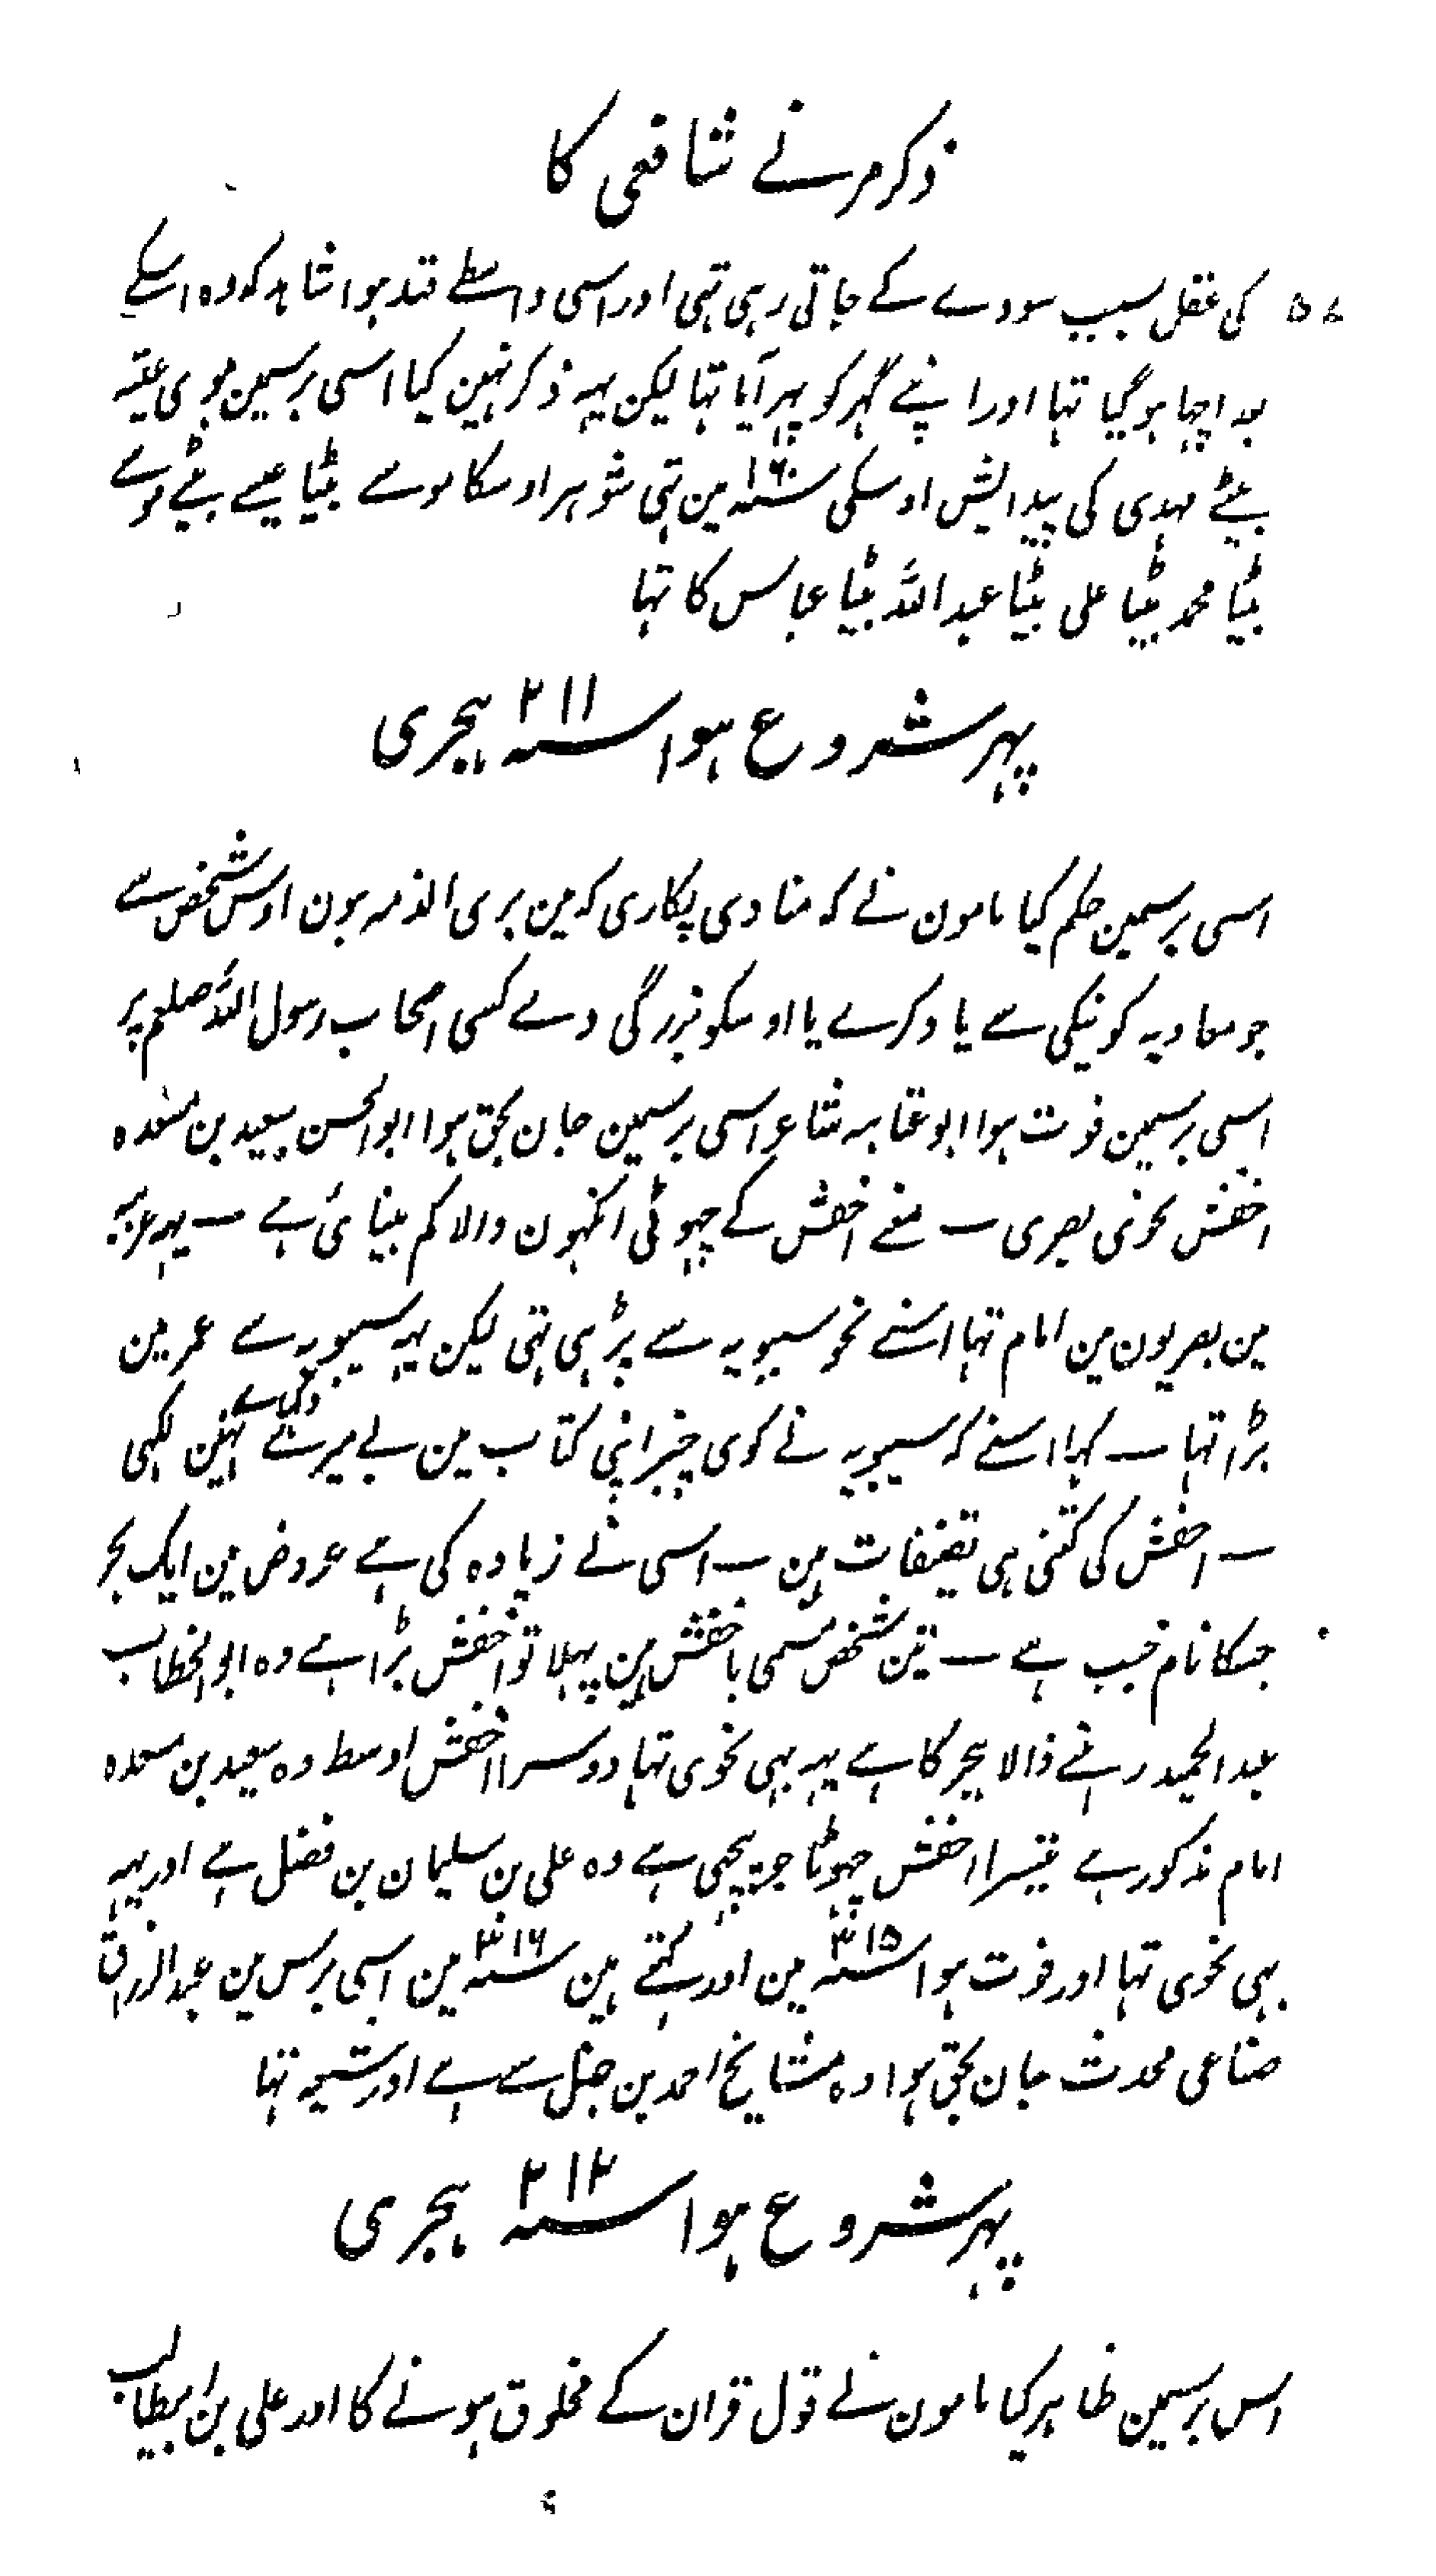 ذکر مرنے شافعی کا
۵۷ کی عقل بسبب سودے کے جاتی رہی تہی اور اسی واسطے قید ہوا شاید کہ وہ اسکے
بعد اچہا ہوگیا تہا اور اپنے گہر کو پہر آیا تہا لیکن یہہ ذکر نہین کیا اسی برسمین موی علیہ
بیٹے مہدی کی پیدایش اوسکی سنہ ۱۶۰ مین تہی شوہر اوسکا موسے بیٹا عیسے بیٹے موسے
بیٹا محمد بیٹا علی بیٹا عبد اللہ بیٹا عباس کا تہا
پہر شروع ہوا سنہ ۲۱۱ ہجری
اسی برسمین حکم کیا مامون نے کہ منادی پکاری کہ مین بری الذمہ ہون اوس شخص سے
جو معاویہ کو نیکی سے یاد کرے یا اوسکو بزرگی دے کسی اصحاب رسول اللہ صلعم پر
اسی برسمین فوت ہوا ابو عتاہہ شاعر اسی برسمین جان بحق ہوا ابو الحسن سعید بن مسعدہ
اخفش نحوی بصری — معنے اخفش کے چہوٹی انکہون والا کم بینائی ہے — یہہ عربیہ
مین بصریون مین امام تہا اسنے نحو سیبویہ سے پڑہی تہی لیکن یہہ سیبویہ سے عمر مین
بڑا تہا — کہا اسنے کہ سیبویہ نے کوی چیز اپنی کتاب مین بے میرے دکہاے نہین لکہی
— اخفش کی کتنی ہی تصنیفات ہین — اسی نے زیادہ کی ہے عروض مین ایک بحر
جسکا نام خبب ہے — تین شخص مسمی باخفش ہین پہلا تو اخفش بڑا ہے وہ ابو الخطاب
عبد الحمید رہنے والا ہجر کا ہے یہہ بہی نحوی تہا دوسرا اخفش اوسط وہ سعید بن مسعدہ
امام مذکور ہے تیسرا اخفش چہوٹا جو پیچہے ہے وہ علی بن سلیمان بن فضل ہے اور یہہ
بہی نحوی تہا اور فوت ہوا سنہ ۳۱۵ مین اور کہتے ہین سنہ ۳۱۶ مین اسی برس مین عبد الرزاق
صناعی محدث جان بحق ہوا وہ مشایخ احمد بن حنبل سے ہے اور شیعہ تہا
پہر شروع ہوا سنہ ۲۱۲ ہجری
اس برسمین ظاہر کیا مامون نے قول قران کے مخلوق ہونے کا اور علی بن ابیطالب